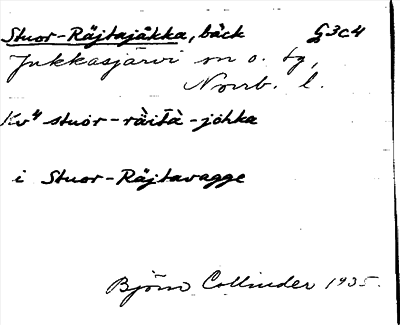 Stuor-Räjtajåkka, bäck G3c4
Jukkasjärvi sn o. tg,
Norrb. l.
Kv4 stuor-ràità-johka
i Stuor-Räjtavagge
Björn Collinder 1935.